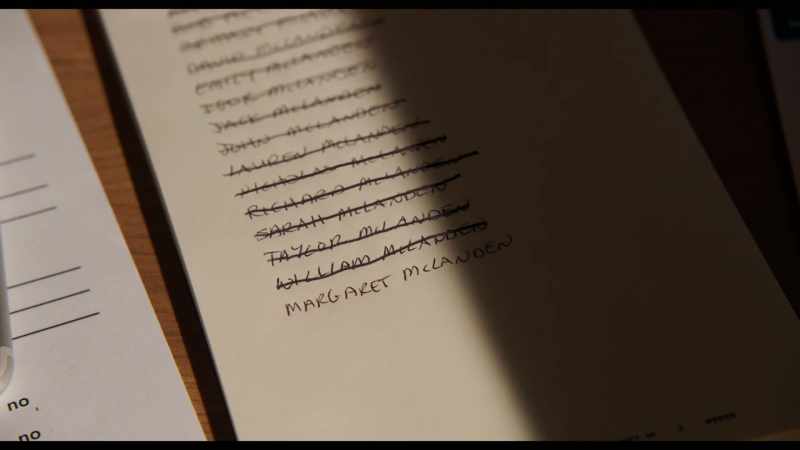 DAVID McLANDEN
EMILY McLANDEN
IGOR McLANDEN
JACK McLANDEN
JOHN McLANDEN
LAUREN McLANDEN
NICHOLAS McLANDEN
RICHARD McLANDEN
SARAH McLANDEN
TAYLOR McLANDEN
WILLIAM McLANDEN
MARGARET McLANDEN
no
no